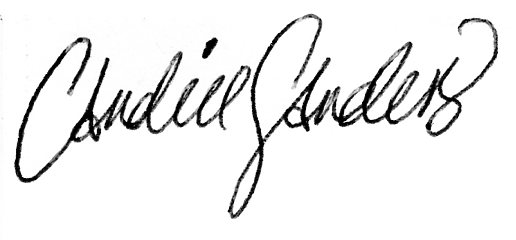 Candice Sanders